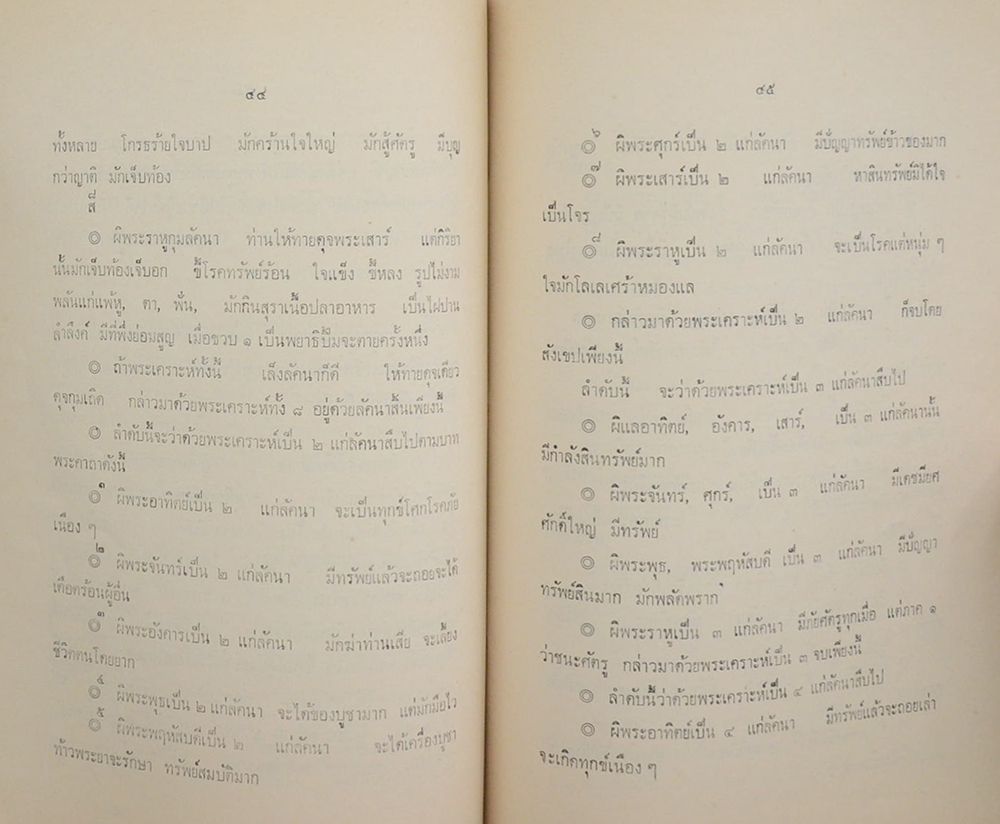 ๔๔
ทั้งหลาย โกรธร้ายใจบาป มักคร้านใจใหญ่ มักสู้ศัตรู มีบุญ
กว่าญาติ มักเจ็บท้อง
๘
ส
◎ ผิพระราหูกุมลัคนา ท่านให้ทายดุจพระเสาร์ แต่กิริยา
นั้นมักเจ็บท้องเจ็บอก ขี้โรคทรัพย์ร้อน ใจแข็ง ขี้หลง รูปไม่งาม
พลันแก่แพ้หู, ตา, ฟั่น, มักกินสุราเนื้อปลาอาหาร เป็นไฝปาน
ลำลึงค์ มีที่พึ่งย่อมสูญ เมื่อขวบ ๑ เป็นพยาธิบ่มจะตายครั้งหนึ่ง
◎ ถ้าพระเคราะห์ทั้งนี้ เล็งลัคนาก็ดี ให้ทายดุจเดียว
ดุจกุมเถิด กล่าวมาด้วยพระเคราะห์ทั้ง ๘ อยู่ด้วยลัคนาสิ้นเพียงนี้
◎ ลำดับนี้จะว่าด้วยพระเคราะห์เป็น ๒ แก่ลัคนาสืบไปตามบาท
พระคาถาดังนี้
๑
◎ ผิพระอาทิตย์เป็น ๒ แก่ลัคนา จะเป็นทุกข์โศกโรคภัย
เนือง ๆ
๒
◎ ผิพระจันทร์เป็น ๒ แก่ลัคนา มีทรัพย์แล้วจะถอยจะได้
เดือดร้อนผู้อื่น
๓
◎ ผิพระอังคารเป็น ๒ แก่ลัคนา มักฆ่าท่านเสีย จะเลี้ยง
ชีวิตตนโดยยาก
๔
◎ ผิพระพุธเป็น ๒ แก่ลัคนา จะได้ของบูชามาก แต่มักมือไว
๕
◎ ผิพระพฤหัสบดีเป็น ๒ แก่ลัคนา จะได้เครื่องบูชา
ท้าวพระยาจะรักษา ทรัพย์สมบัติมาก
๔๕
๖
◎ ผิพระศุกร์เป็น ๒ แก่ลัคนา มีปัญญาทรัพย์ข้าวของมาก
๗
◎ ผิพระเสาร์เป็น ๒ แก่ลัคนา หาสินทรัพย์มิได้ใจ
เป็นโจร
๘
◎ ผิพระราหูเป็น ๒ แก่ลัคนา จะเป็นโรคแต่หนุ่ม ๆ
ใจมักโลเลเศร้าหมองแล
◎ กล่าวมาด้วยพระเคราะห์เป็น ๒ แก่ลัคนา ก็จบโดย
สังเขปเพียงนี้
ลำดับนี้ จะว่าด้วยพระเคราะห์เป็น ๓ แก่ลัคนาสืบไป
◎ ผิแลอาทิตย์, อังคาร, เสาร์, เป็น ๓ แก่ลัคนานั้น
มีกำลังสินทรัพย์มาก
◎ ผิพระจันทร์, ศุกร์, เป็น ๓ แก่ลัคนา มีเดชมียศ
ศักดิ์ใหญ่ มีทรัพย์
◎ ผิพระพุธ, พระพฤหัสบดี เป็น ๓ แก่ลัคนา มีปัญญา
ทรัพย์สินมาก มักพลัดพราก
◎ ผิพระราหูเป็น ๓ แก่ลัคนา มีภัยศัตรูทุกเมื่อ แต่ภาค ๑
ว่าชนะศัตรู กล่าวมาด้วยพระเคราะห์เป็น ๓ จบเพียงนี้
◎ ลำดับนี้ว่าด้วยพระเคราะห์เป็น ๔ แก่ลัคนาสืบไป
◎ ผิพระอาทิตย์เป็น ๔ แก่ลัคนา มีทรัพย์แล้วจะถอยเล่า
จะเกิดทุกข์เนือง ๆ